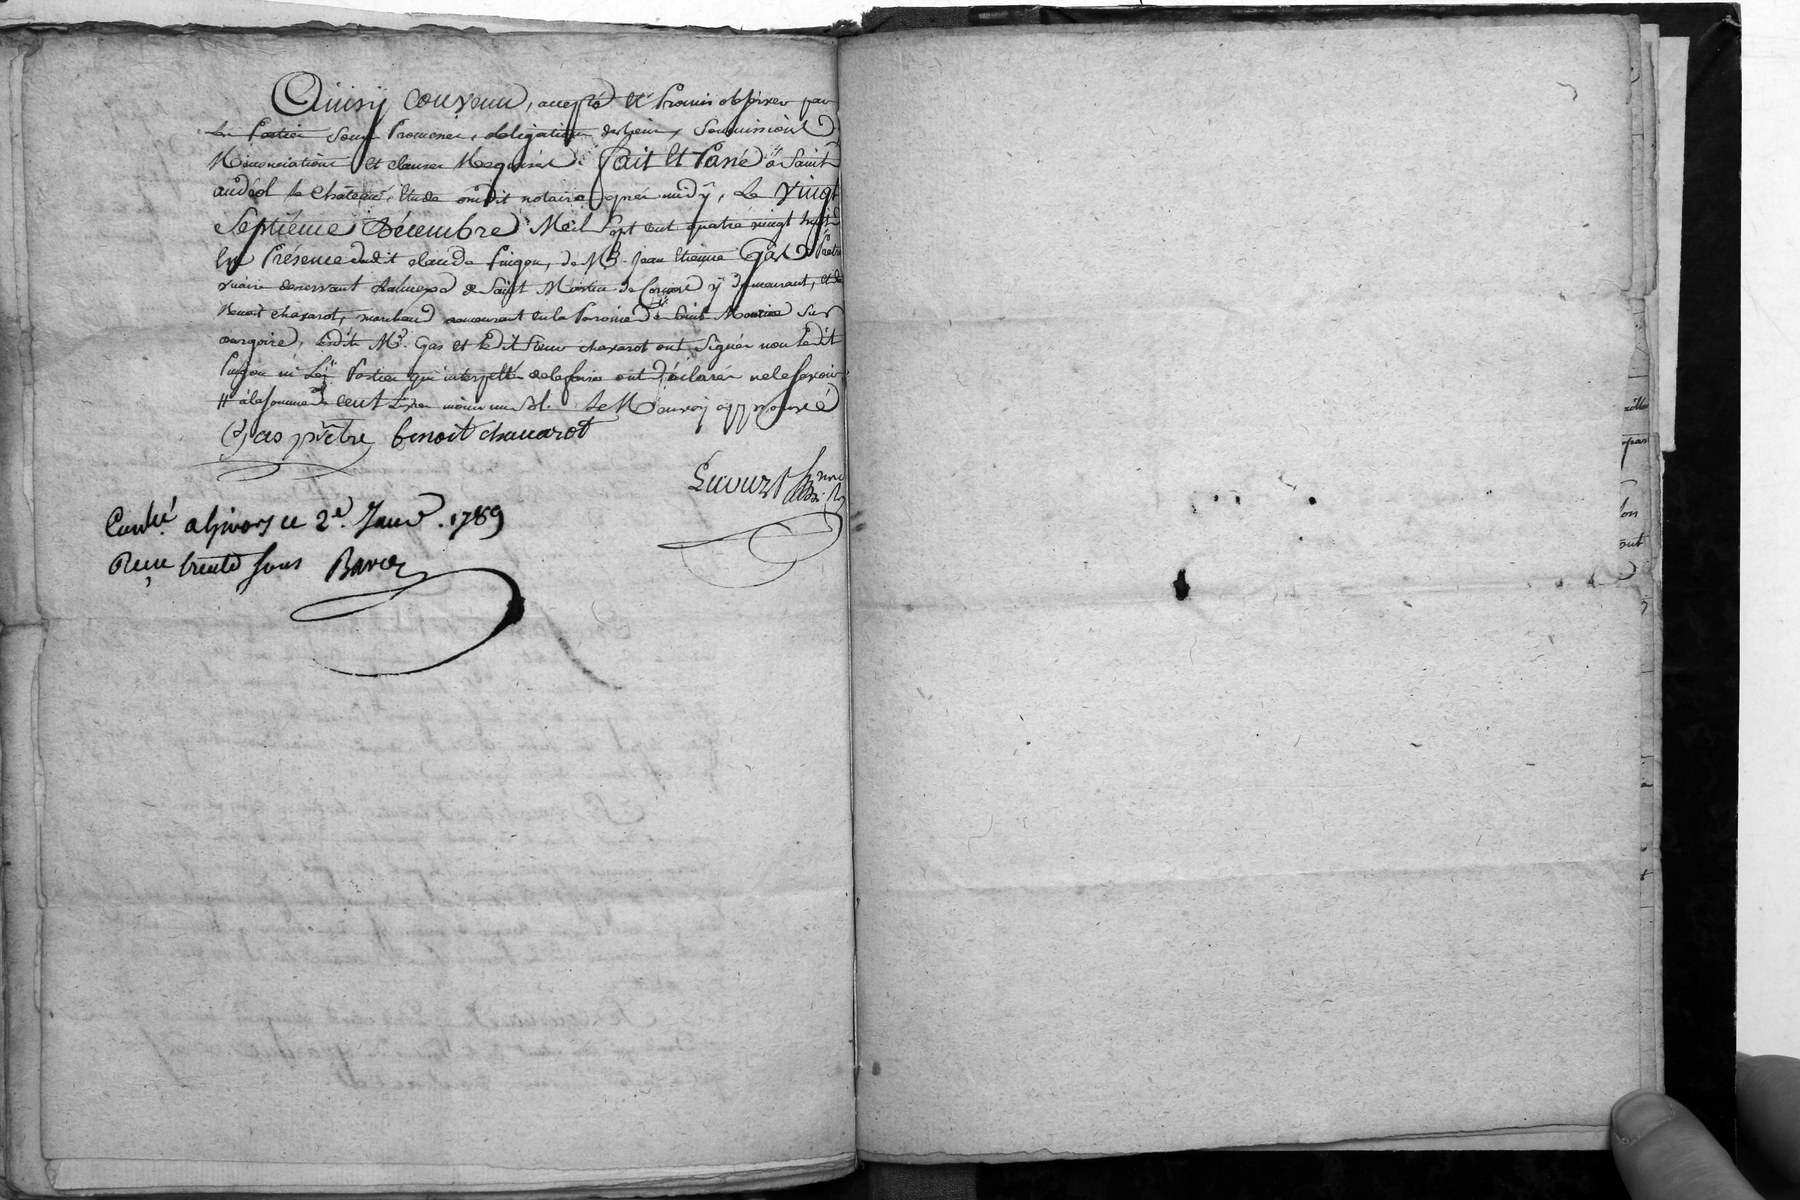 Ainsy Convenu, accepté et Promis observer par
les Parties sous Promesses, obligations des biens, Soumissions
Renonciations et clauses Requises. fait et Passé à Saint
andéol le Château, Etude dudit notaire après midÿ, Le vingt
Septiéme Décembre Mil Sept cent quatre vingt huit
En Présence dudit claude Pinjon, de Mre. Jean Etienne Gas Prêtre
vicaire desservant de Saint Martin de Cornas ÿ demeurant, et de
Benoit chavarot, marchand demeurant en la Paroisse de Saint Maurice Sur
dargoire, Ledit Mre. Gas et Ledit Sieur chavarot ont Signés non Ledit
Pinjon ni Les Parties qui interpellés de le faire ont déclarés ne le Savoir
# à la Somme de cent Livres moins un Sol. Le Renvoy approuvé
Gas prêtre benoit chavarot
Conlé. a Givors le 2e. Janv. 1789
Reçu trente sous